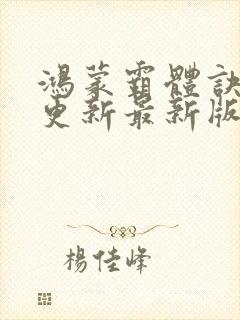 鴻蒙霸體訣
更新最新版
楊佳峰